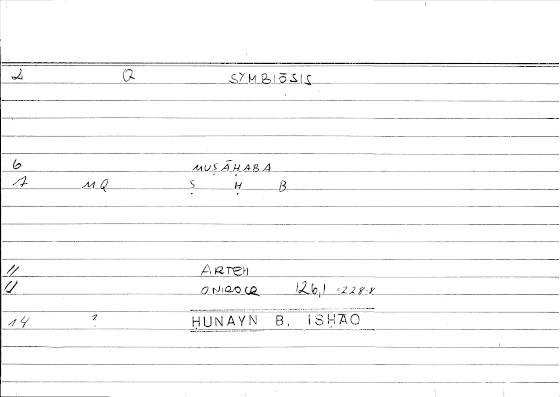 2 Q SYMBIŌSIS
6 MUṢĀḤABA
7 MQ Ṣ Ḥ B
11 ARTEM
ONIROCR 126,1 =228.8
14 ? ḤUNAYN B. ISḤĀQ